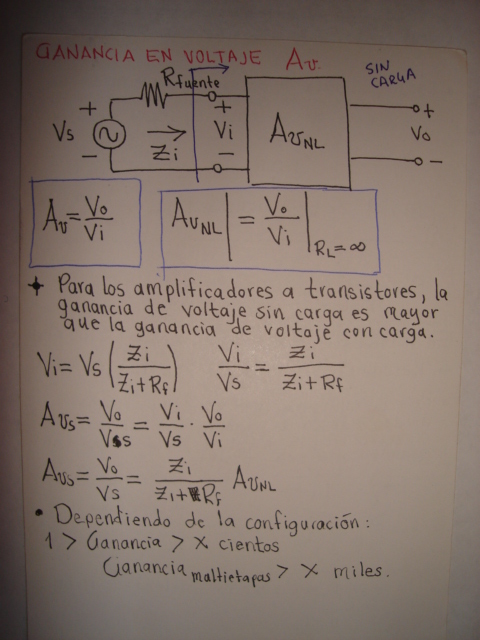 GANANCIA EN VOLTAJE Av
Rfuente
SIN CARGA
+ + +
Vs Zi Vi AvNL Vo
− − −
Av = Vo/Vi
AvNL | = Vo/Vi | RL=∞
Para los amplificadores a transistores, la
ganancia de voltaje sin carga es mayor
que la ganancia de voltaje con carga.
Vi = Vs (Zi/(Zi+Rf)) Vi/Vs = Zi/(Zi+Rf)
Avs = Vo/Vs = Vi/Vs · Vo/Vi
Avs = Vo/Vs = Zi/(Zi+Rf) AvNL
• Dependiendo de la configuración:
1 > Ganancia > X cientos
Ganancia multietapas > X miles.